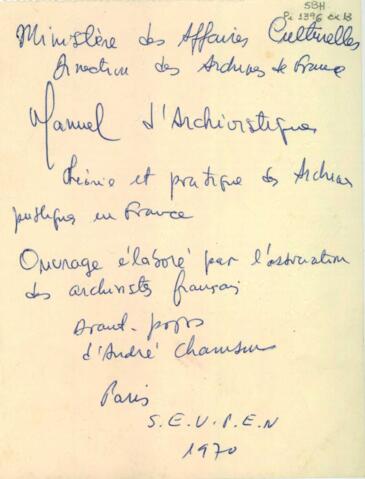 SBH
Pi 1396 ex B
Ministère des Affaires Culturelles
Direction des Archives de France
Manuel d'Archivistique
théorie et pratique des Archives
publiques en France
Ouvrage élaboré par l'association
des archivistes français
avant-propos
d'André Chamson
Paris
S.E.V.P.E.N
1970